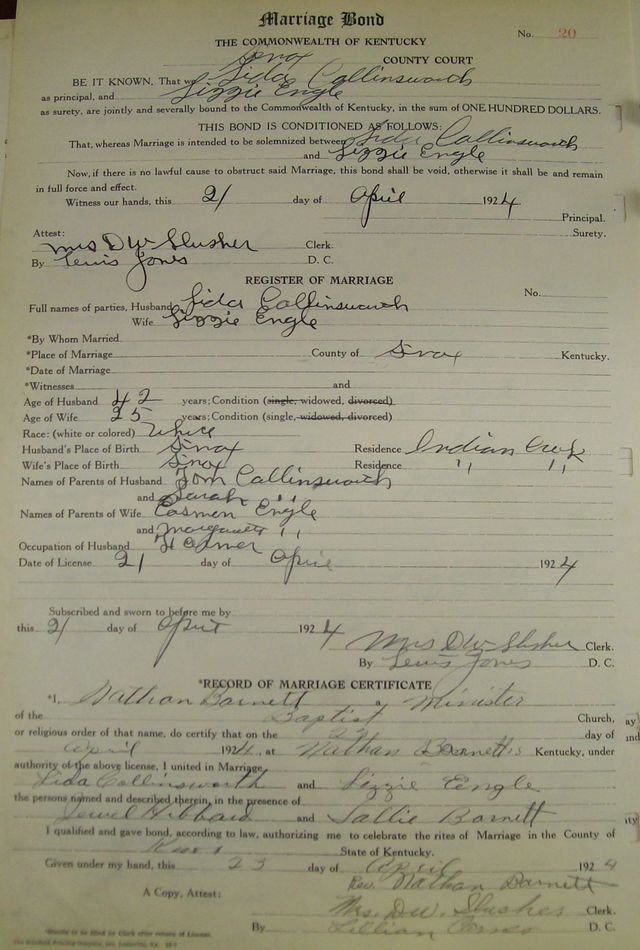 Marriage Bond
No. 20
THE COMMONWEALTH OF KENTUCKY
Knox COUNTY COURT
BE IT KNOWN, That we Lida Collinsworth
as principal, and Lizzie Engle
as surety, are jointly and severally bound to the Commonwealth of Kentucky, in the sum of ONE HUNDRED DOLLARS.
THIS BOND IS CONDITIONED AS FOLLOWS:
That, whereas Marriage is intended to be solemnized between Lida Collinsworth
and Lizzie Engle
Now, if there is no lawful cause to obstruct said Marriage, this bond shall be void, otherwise it shall be and remain
in full force and effect.
Witness our hands, this 21 day of April 1924
Principal.
Surety.
Attest:
Mrs DW Slusher Clerk.
By Lewis Jones D. C.
REGISTER OF MARRIAGE
No.
Full names of parties, Husband Lida Collinsworth
Wife Lizzie Engle
*By Whom Married
*Place of Marriage County of Knox Kentucky.
*Date of Marriage
*Witnesses and
Age of Husband 42 years; Condition (single, widowed, divorced)
Age of Wife 25 years; Condition (single, widowed, divorced)
Race: (white or colored) White
Husband's Place of Birth Knox Residence Indian Creek
Wife's Place of Birth Knox Residence " "
Names of Parents of Husband Tom Collinsworth
and Sarah "
Names of Parents of Wife Engle
and "
Occupation of Husband Farmer
Date of License 21 day of April 1924
Subscribed and sworn to before me by
this 21 day of April 1924
Mrs DW Slusher Clerk.
By Lewis Jones D. C.
*RECORD OF MARRIAGE CERTIFICATE
*I, Nathan Barnett a Minister
of the Baptist Church,
or religious order of that name, do certify that on the 23 day of
April 1924, at Nathan Barnett's Kentucky, under
authority of the above license, I united in Marriage
Lida Collinsworth and Lizzie Engle
the persons named and described therein, in the presence of
Jewel Hibbard and Sallie Barnett
I qualified and gave bond, according to law, authorizing me to celebrate the rites of Marriage in the County of
Knox State of Kentucky.
Given under my hand, this 23 day of April 1924
Rev. Nathan Barnett
A Copy, Attest: Mrs. D.W. Slusher Clerk.
By Lillian Jones D. C.
*Blanks to be filled by Clerk after return of License.